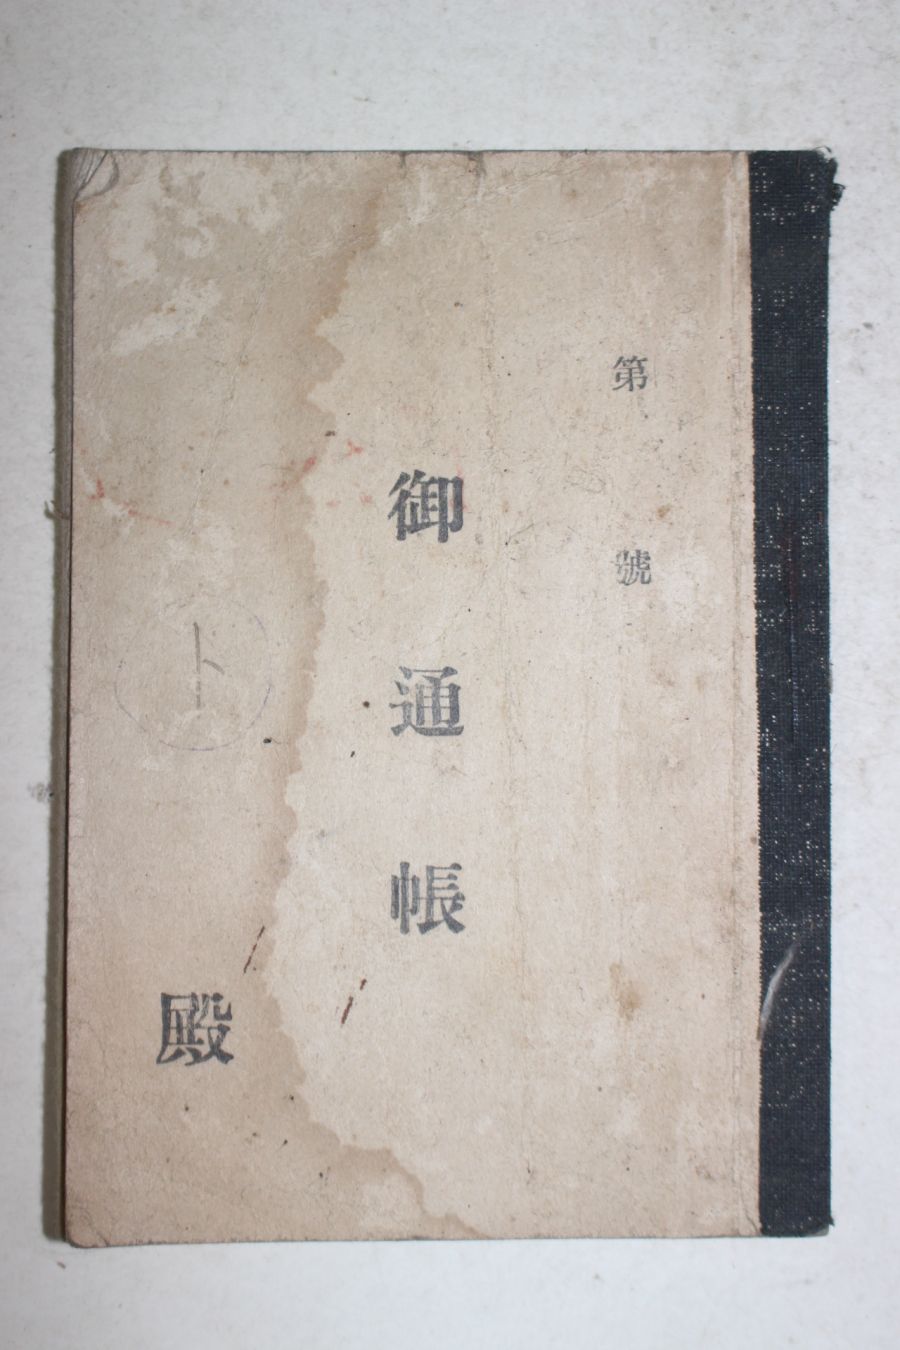 第 號
御通帳
ト
殿